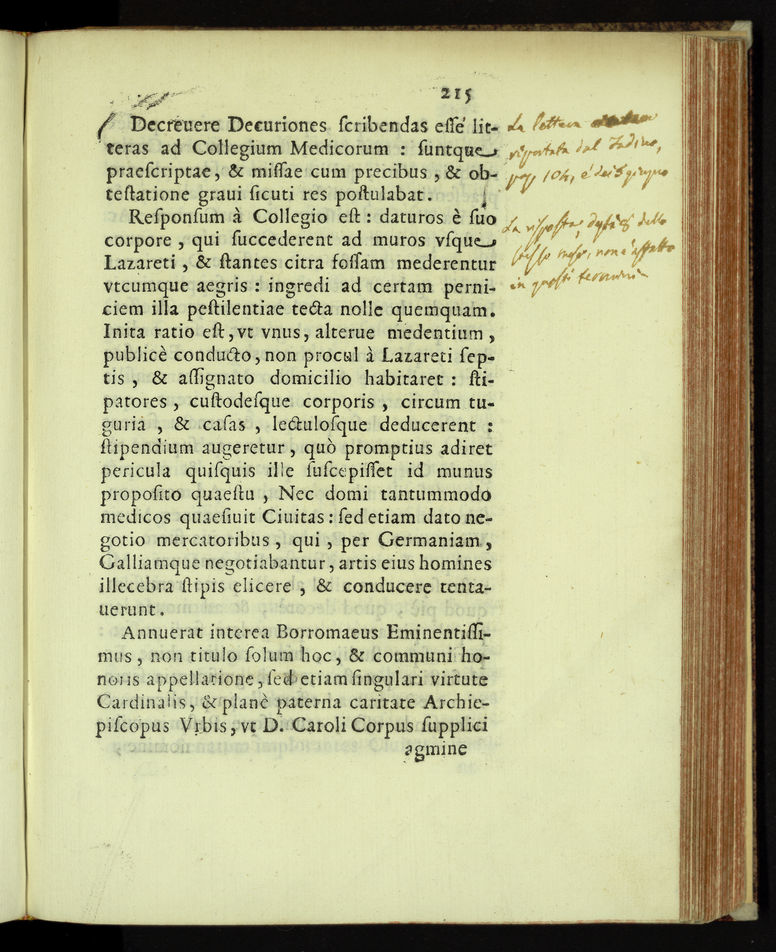 215
Decreuere Decuriones ſcribendas eſſe lit-
teras ad Collegium Medicorum : ſuntque
praeſcriptae, & miſſae cum precibus , & ob-
teſtatione graui ſicuti res poſtulabat .
Reſponſum à Collegio eſt : daturos è ſuo
corpore , qui ſuccederent ad muros vſque
Lazareti , & ſtantes citra foſſam mederentur
vtcumque aegris : ingredi ad certam perni-
ciem illa peſtilentiae tecta nolle quemquam.
Inita ratio eſt, vt vnus, alterue medentium ,
publicè conducto, non procul à Lazareti ſep-
tis , & aſſignato domicilio habitaret : ſti-
patores , cuſtodeſque corporis , circum tu-
guria , & caſas , lectuloſque deducerent :
ſtipendium augeretur , quò promptius adiret
pericula quiſquis ille ſuſcepiſſet id munus
propoſito quaeſtu , Nec domi tantummodo
medicos quaeſiuit Ciuitas : ſed etiam dato ne-
gotio mercatoribus , qui , per Germaniam ,
Galliamque negotiabantur, artis eius homines
illecebra ſtipis elicere , & conducere tenta-
uerunt .
Annuerat interea Borromaeus Eminentiſſi-
mus , non titulo ſolum hoc , & communi ho-
noris appellatione, ſed etiam ſingulari virtute
Cardinalis, & planè paterna caritate Archie-
piſcopus Vrbis, vt D. Caroli Corpus ſupplici
agmine
La lettera
riportata dal Tadino,
pag 104, è dei 8 giugno
La risposta, data dello
stesso mese, non è affatto
in questi termini